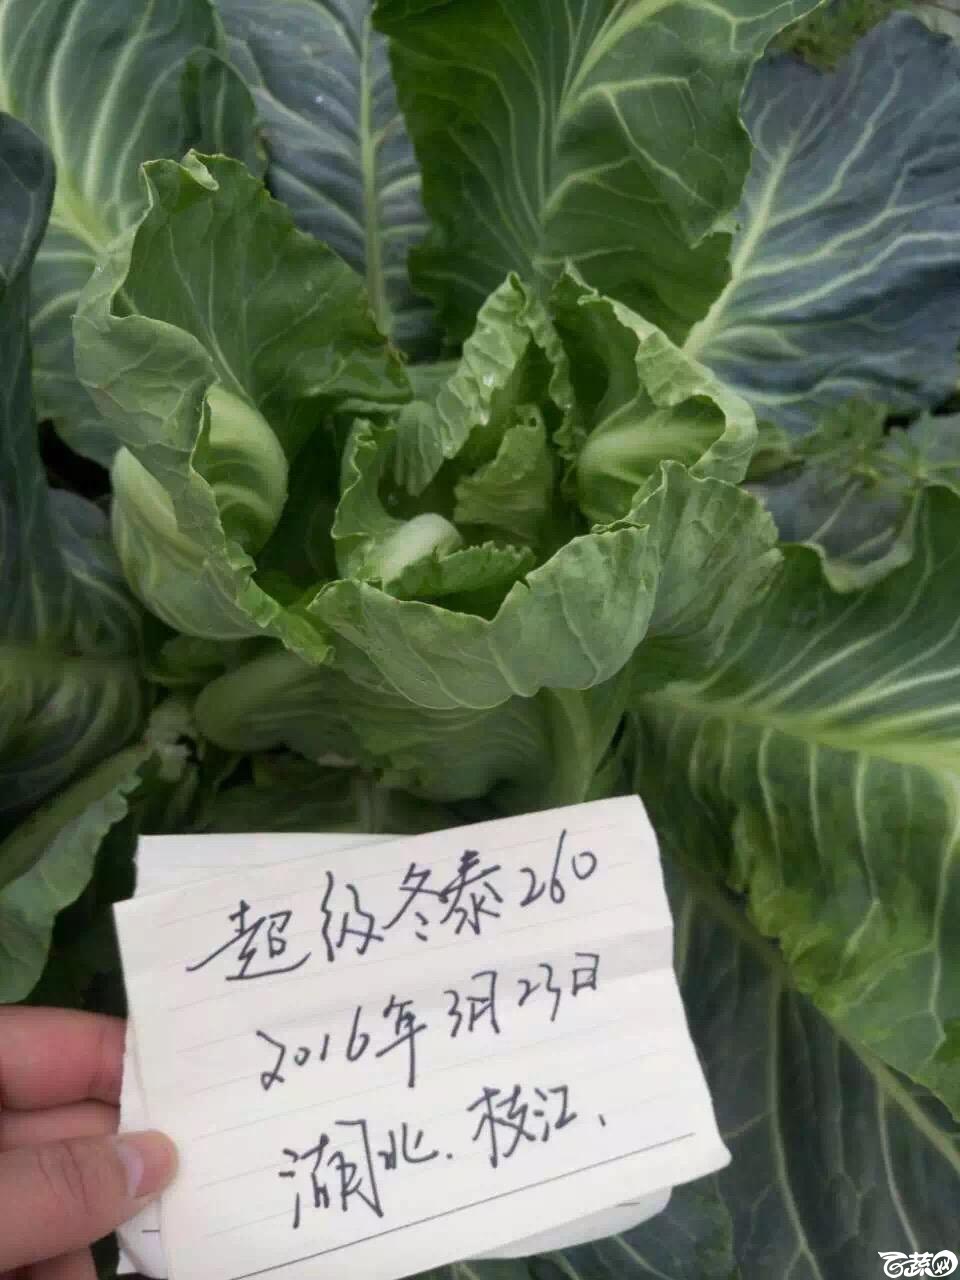 超级冬泰260
2016年3月23日
湖北.枝江.
百蔬网